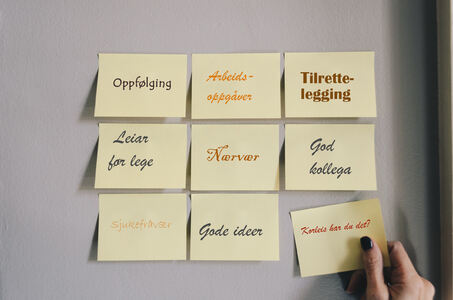 Oppfølging
Arbeids-
oppgåver
Tilrette-
legging
Leiar
før lege
Nærvær
God
kollega
Sjukefråvær
Gode ideer
Korleis har du det?